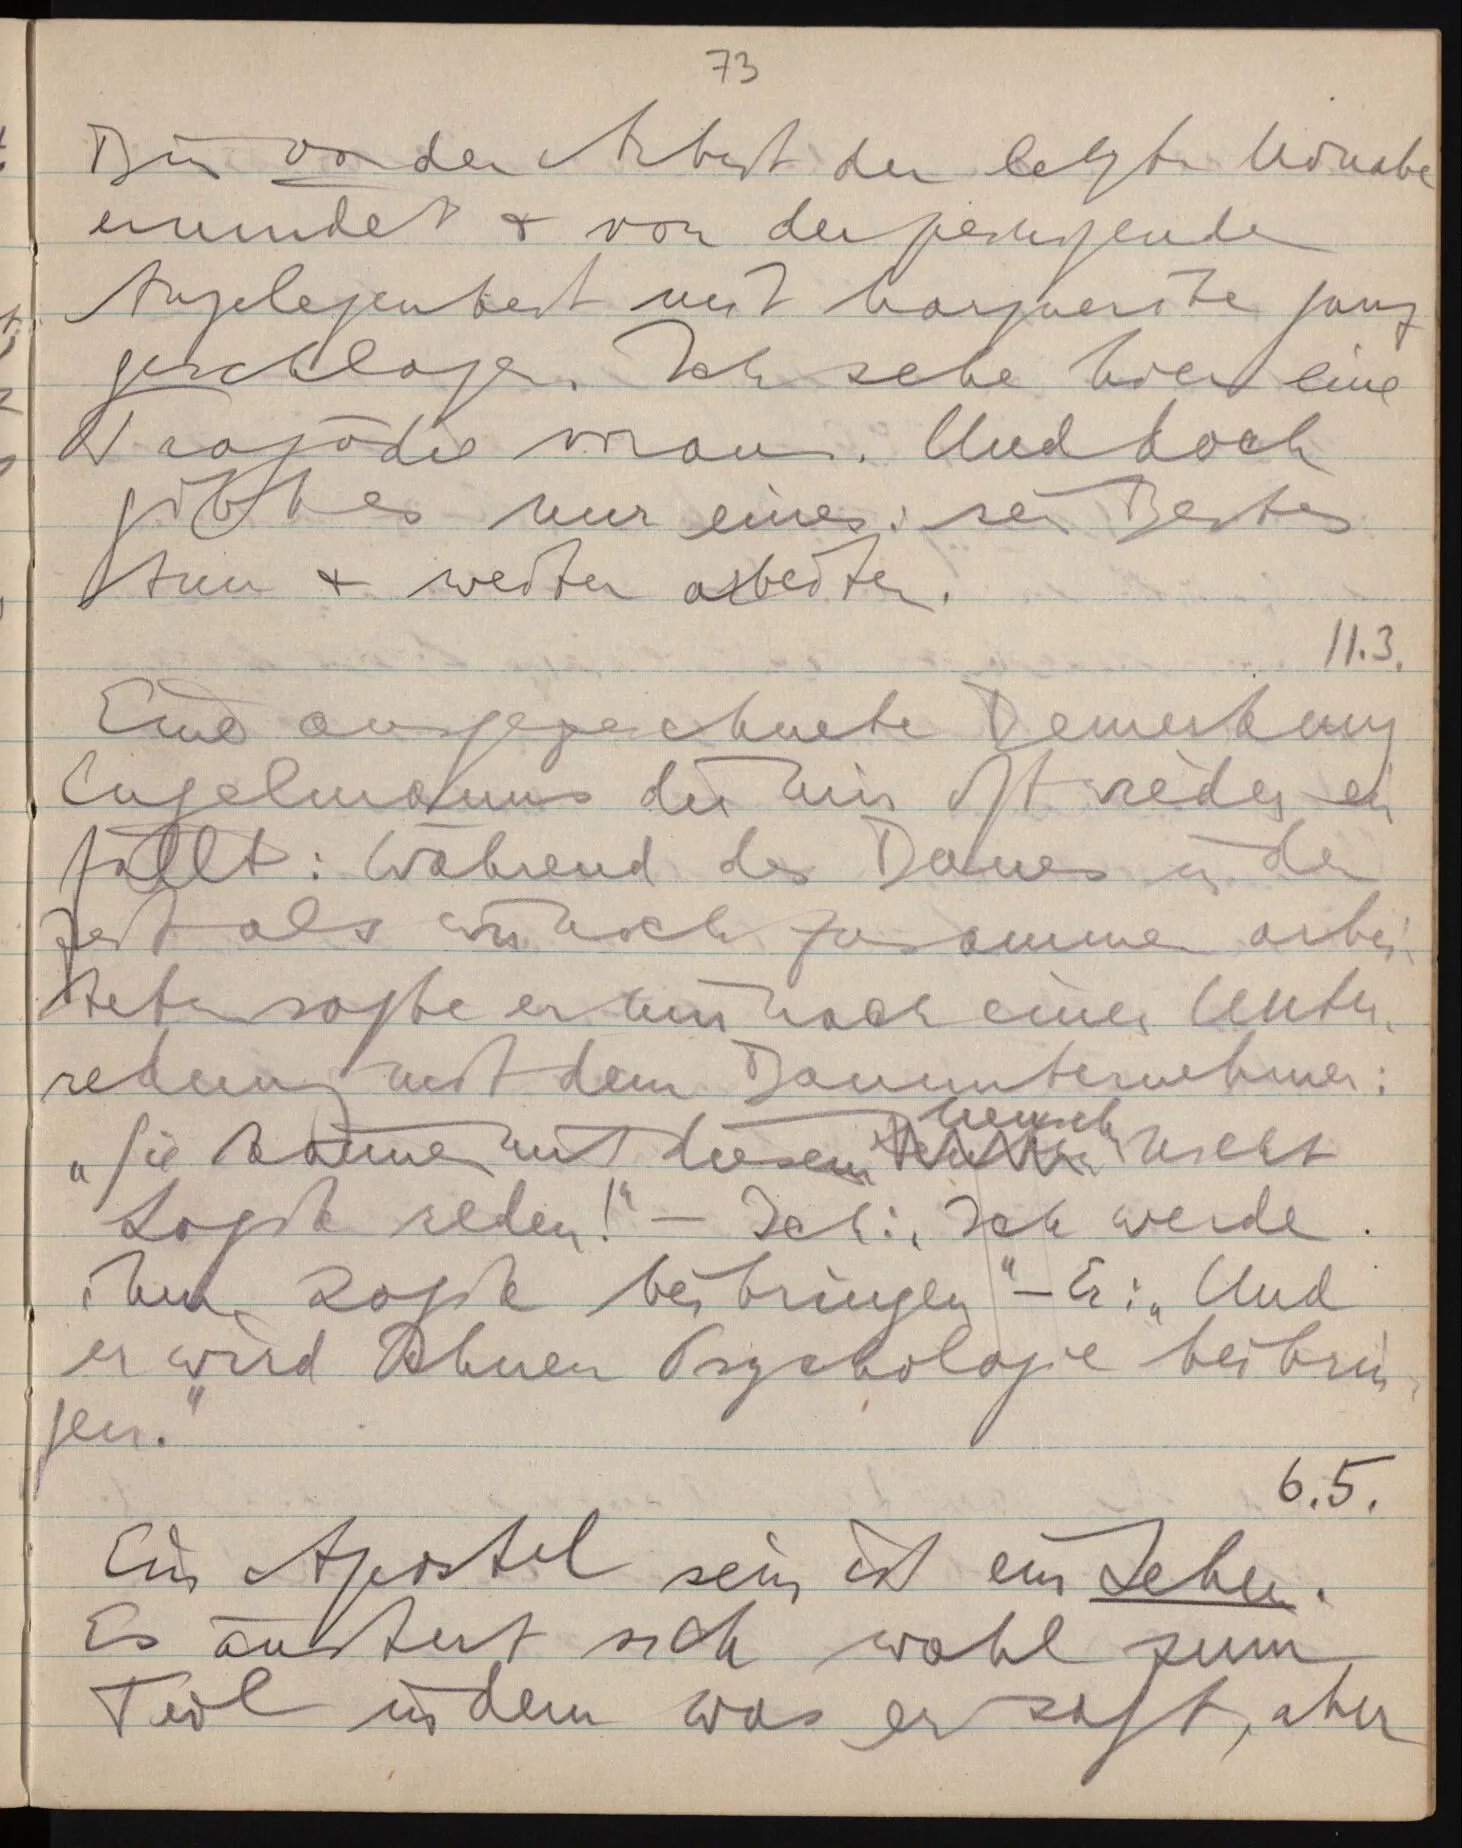 73
Bin von der Arbeit der letzten Monate
ermüdet & von der peinigenden
Angelegenheit mit Marguerite ganz
geschlagen. Ich sehe hier eine
Tragödie voraus. Und doch
gibt es nur eines: sein Bestes
tun & weiter arbeiten.
11.3.
Eine ausgezeichnete Bemerkung
Engelmanns die mir oft wieder ein
fällt: Während des Baues in der
Zeit als wir noch zusammen arbei-
teten sagte er mir nach einer Unter-
redung mit dem Bauunternehmer:
„Sie können mit diesem Menschen nicht
Logik reden!“ – Ich: „Ich werde
ihm Logik beibringen“ – Er: „Und
er wird Ihnen Psychologie beibrin-
gen.“
6.5.
Ein Apostel sein ist ein Leben.
Es äußert sich wohl zum
Teil in dem was er sagt, aber